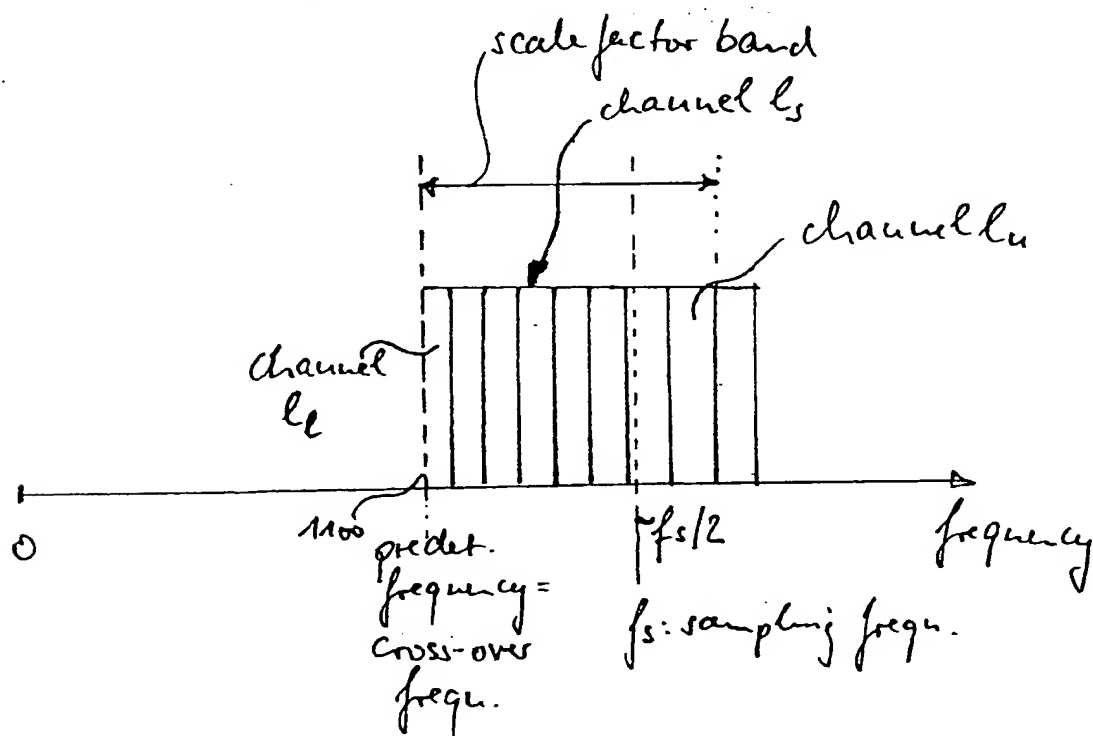 scale factor band
channel ls
channel lu
channel
ll
0
1100
predet.
frequency =
cross-over
frequ.
~fs/2
fs: sampling frequ.
frequency